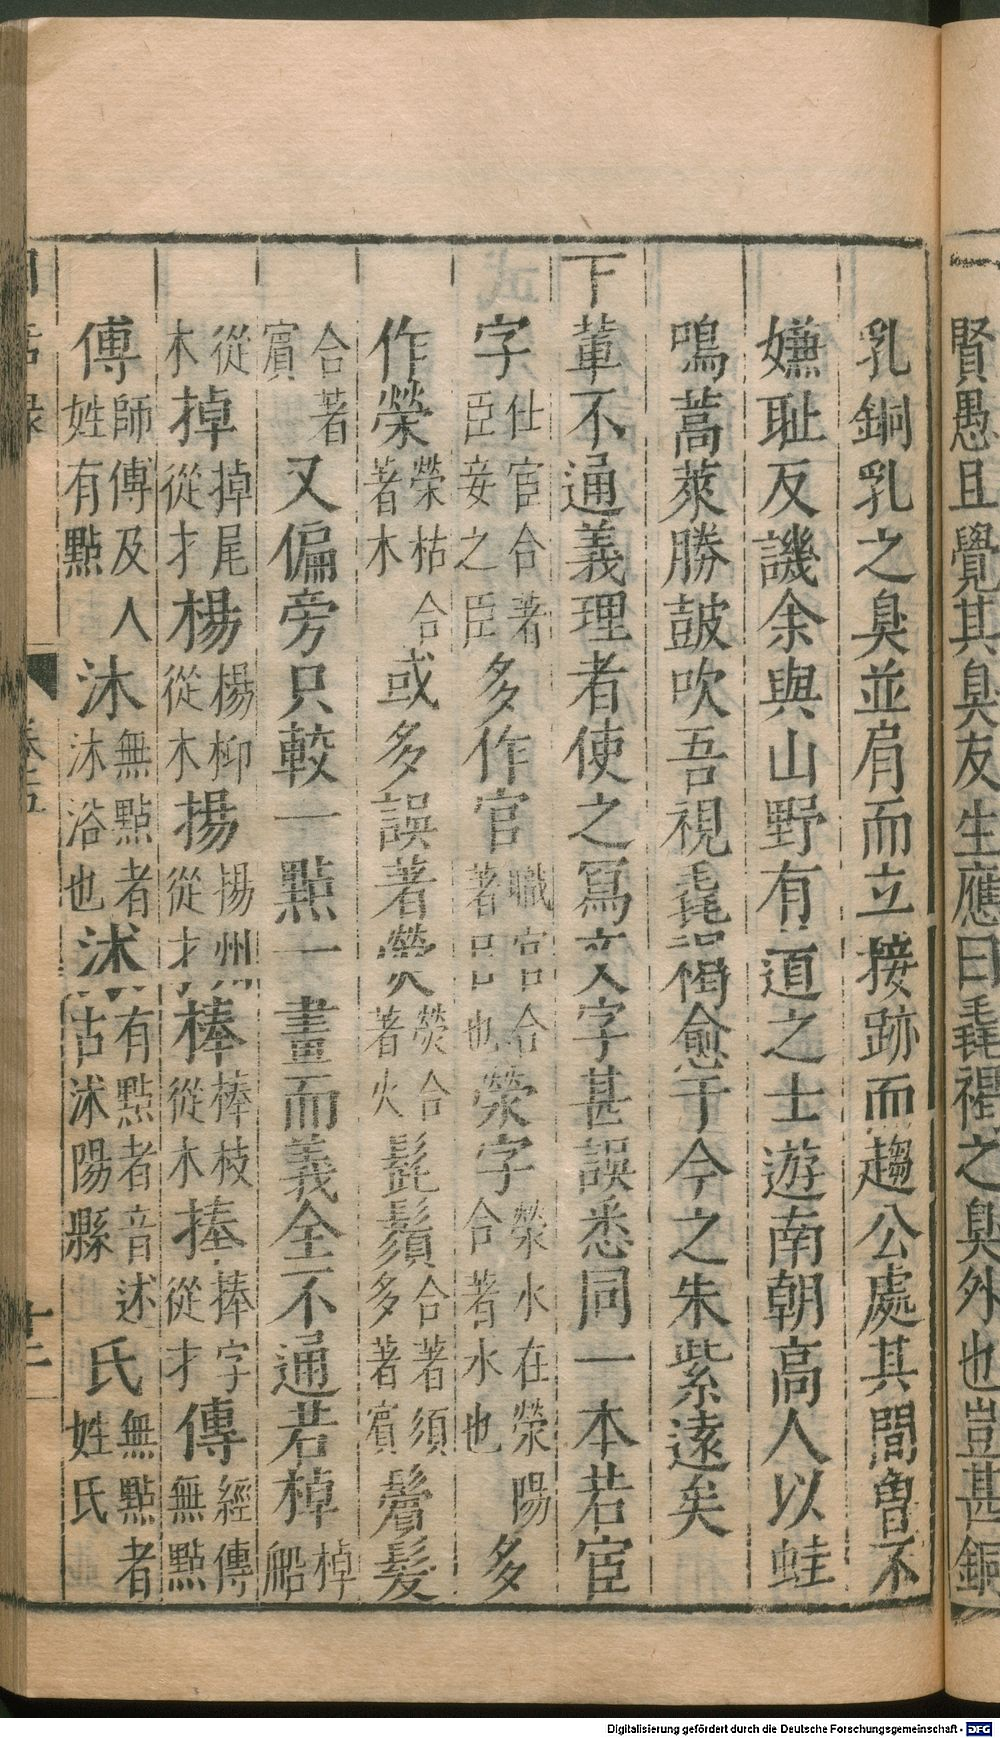 賢愚且覺其臭友生應曰毳褐之臭外也豈甚銅
乳銅乳之臭並肩而立接跡而趨公處其間曾不
嫌恥反譏余與山野有道之士遊南朝高人以蛙
鳴蒿萊勝鼓吹吾視毳褐愈于今之朱紫遠矣
下輩不通義理者使之寫文字甚誤悉同一本若宦
字仕宦合著臣妾之臣多作官職官合著㠯也滎字滎水在滎陽合著水也多
作榮榮枯合著木或多誤著熒熒合著火髭鬚合著須多著賓鬢髮
合著賓又偏旁只較一點一畫而義全不通若棹棹船
從木掉掉尾從才楊楊柳從木揚揚州從才棒棒枝從木捧捧字從才傳經傳無點
傅師傅及人姓有點沐無點者沐浴也沭有點者音述古沭陽縣氏無點者姓氏
卷五
十二
Digitalisierung gefördert durch die Deutsche Forschungsgemeinschaft - DFG